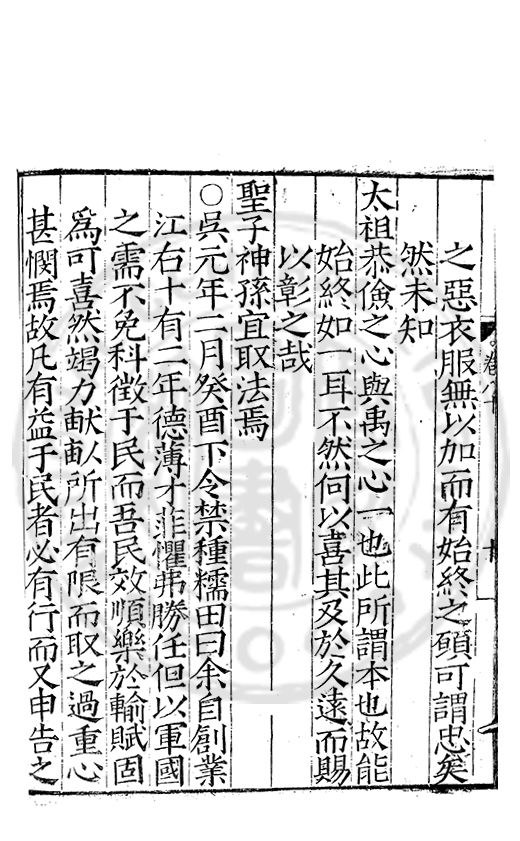 之惡衣服無以加而有始終之願可謂忠矣
然未知
太祖恭儉之心與禹之心一也此所謂本也故能
始終如一耳不然何以喜其及於久遠而賜
以彰之哉
聖子神孫宜取法焉
○吳元年二月癸酉下令禁種糯田曰余自創業
江右十有二年德薄才菲懼弗勝任但以軍國
之需不免科徵于民而吾民效順樂於輸賦固
為可喜然竭力畎畝所出有限而取之過重心
甚憫焉故凡有益于民者必有行而又申告之